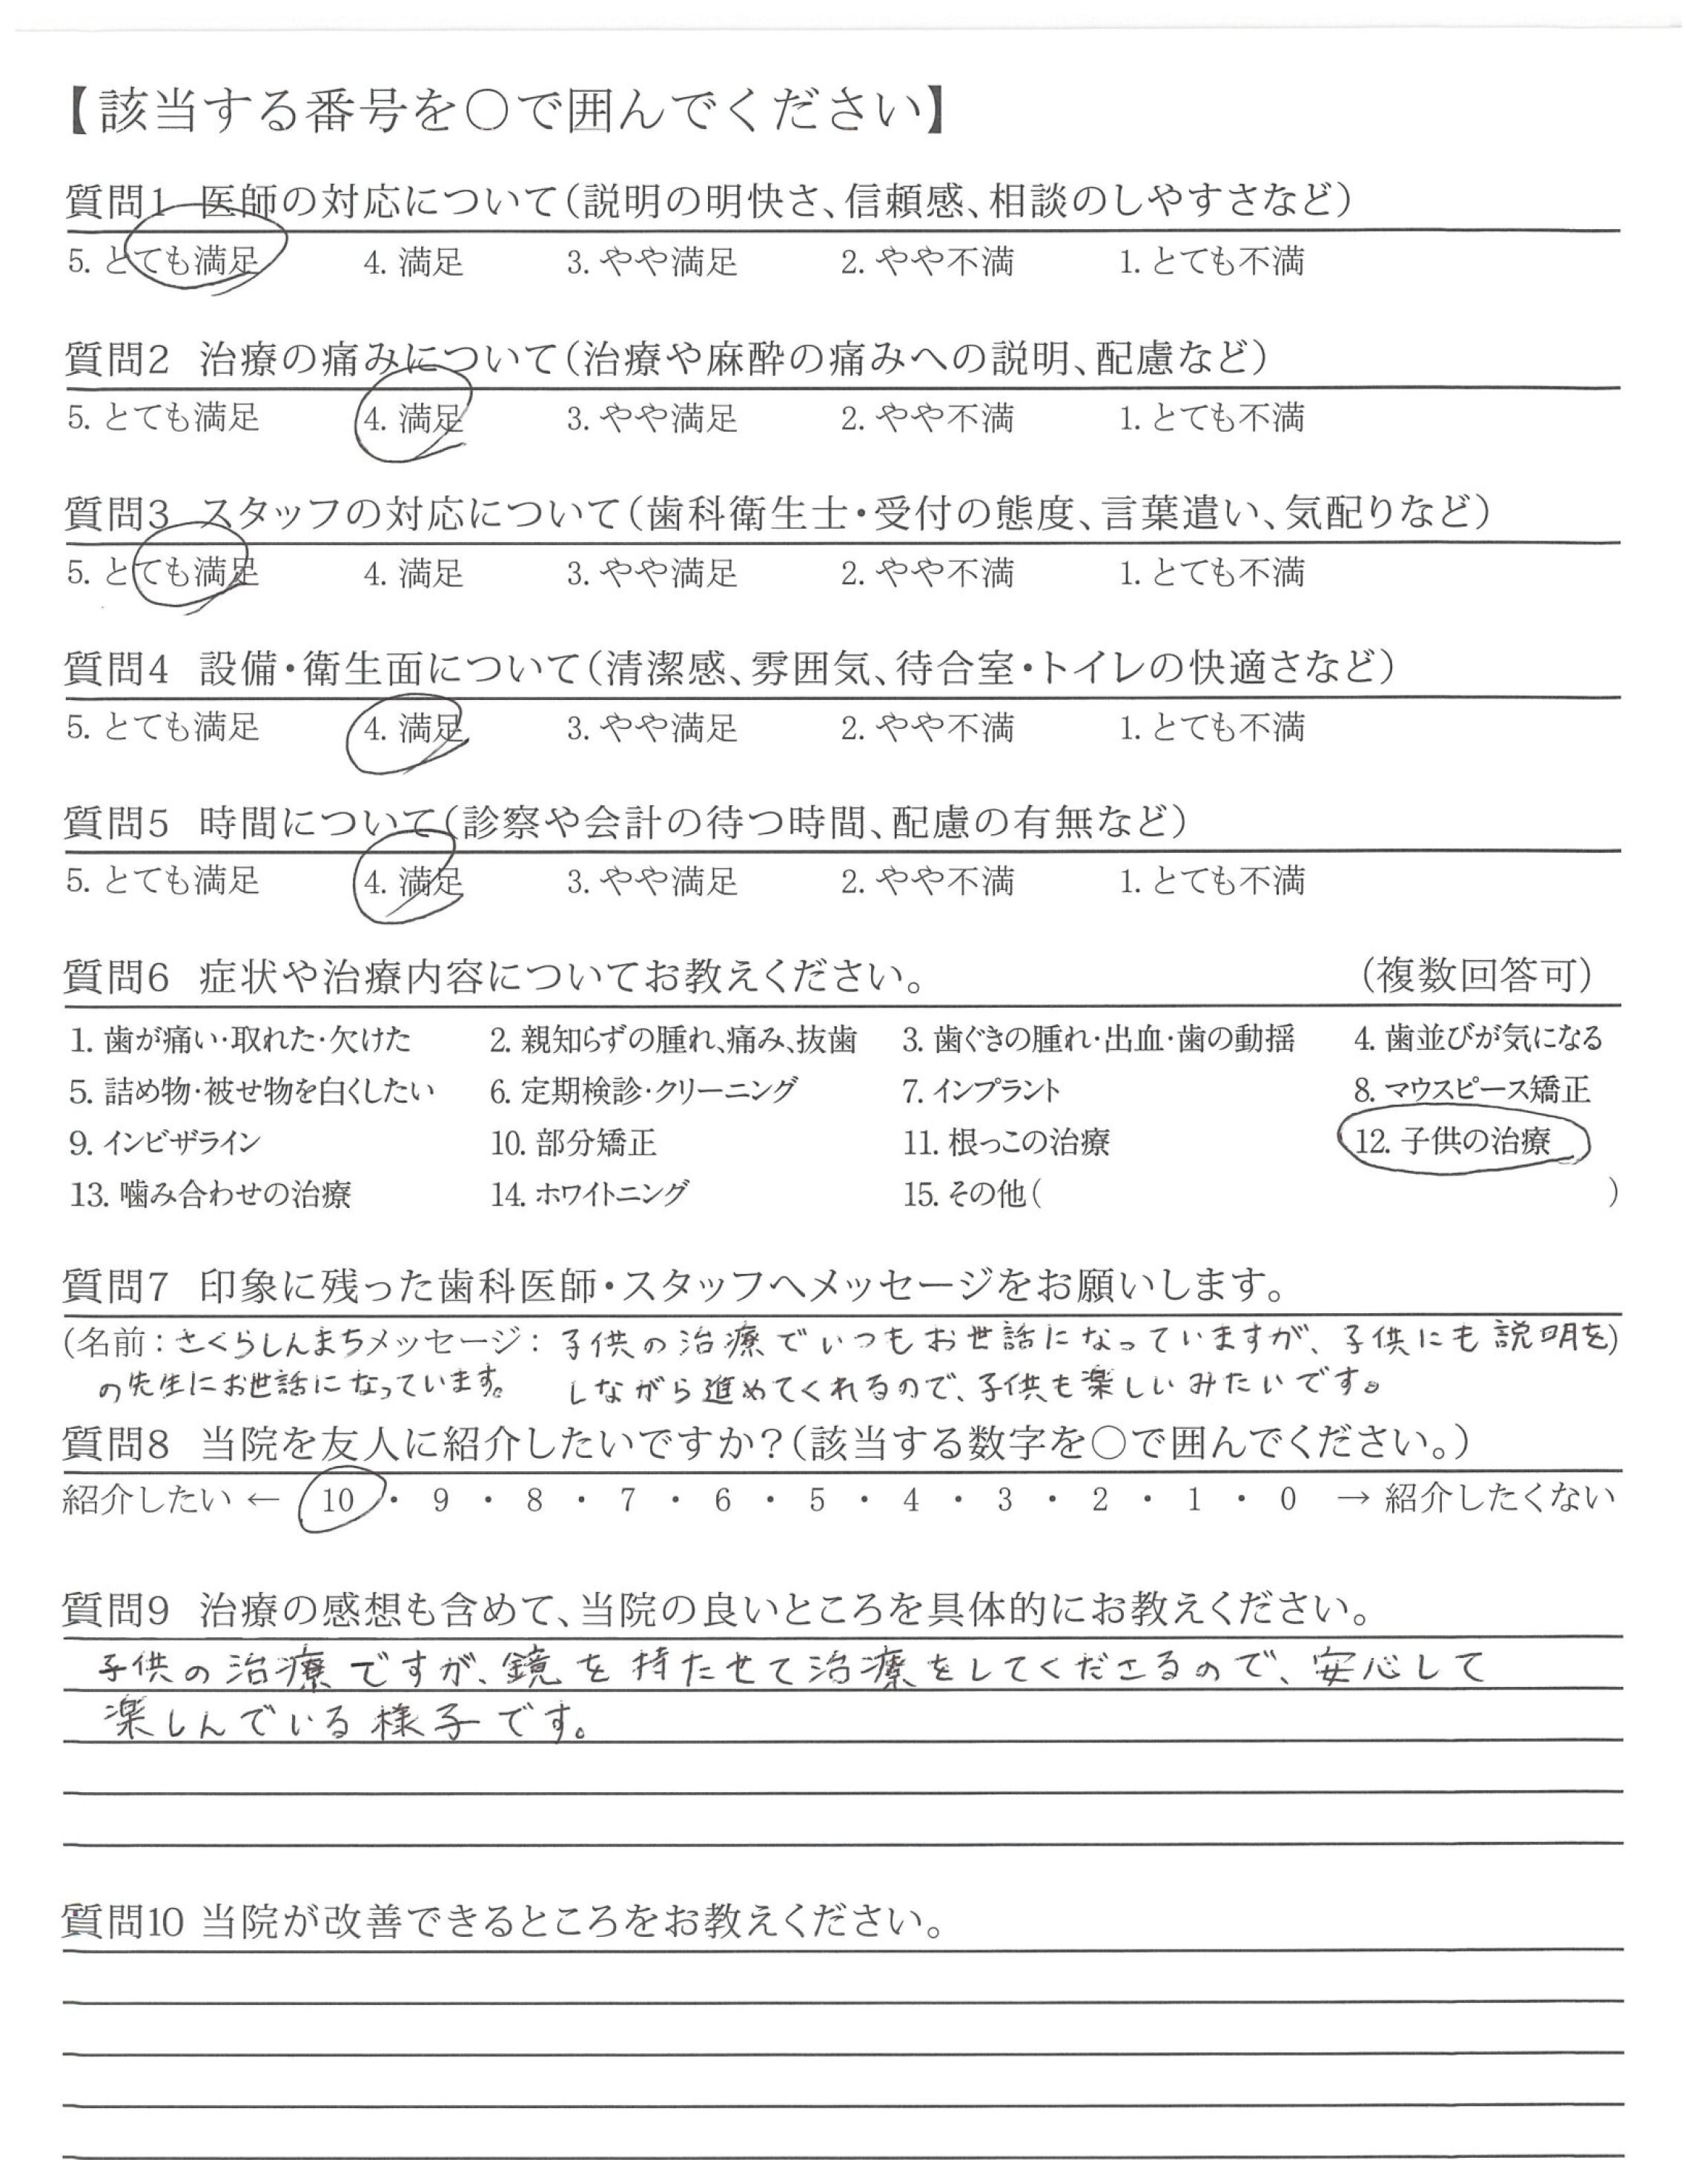 【該当する番号を〇で囲んでください】
質問1 医師の対応について(説明の明快さ、信頼感、相談のしやすさなど)
5. とても満足 4. 満足 3. やや満足 2. やや不満 1. とても不満
質問2 治療の痛みについて(治療や麻酔の痛みへの説明、配慮など)
5. とても満足 4. 満足 3. やや満足 2. やや不満 1. とても不満
質問3 スタッフの対応について(歯科衛生士・受付の態度、言葉遣い、気配りなど)
5. とても満足 4. 満足 3. やや満足 2. やや不満 1. とても不満
質問4 設備・衛生面について(清潔感、雰囲気、待合室・トイレの快適さなど)
5. とても満足 4. 満足 3. やや満足 2. やや不満 1. とても不満
質問5 時間について(診察や会計の待つ時間、配慮の有無など)
5. とても満足 4. 満足 3. やや満足 2. やや不満 1. とても不満
質問6 症状や治療内容についてお教えください。 (複数回答可)
1. 歯が痛い・取れた・欠けた 2. 親知らずの腫れ、痛み、抜歯 3. 歯ぐきの腫れ・出血・歯の動揺 4. 歯並びが気になる
5. 詰め物・被せ物を白くしたい 6. 定期検診・クリーニング 7. インプラント 8. マウスピース矯正
9. インビザライン 10. 部分矯正 11. 根っこの治療 12. 子供の治療
13. 噛み合わせの治療 14. ホワイトニング 15. その他( )
質問7 印象に残った歯科医師・スタッフへメッセージをお願いします。
(名前：さくらしんまちメッセージ：子供の治療でいつもお世話になっていますが、子供にも説明を)
の先生にお世話になっています。 しながら進めてくれるので、子供も楽しいみたいです。
質問8 当院を友人に紹介したいですか?(該当する数字を〇で囲んでください。)
紹介したい ← 10 ・ 9 ・ 8 ・ 7 ・ 6 ・ 5 ・ 4 ・ 3 ・ 2 ・ 1 ・ 0 → 紹介したくない
質問9 治療の感想も含めて、当院の良いところを具体的にお教えください。
子供の治療ですが、鏡を持たせて治療をしてくださるので、安心して
楽しんでいる様子です。
質問10 当院が改善できるところをお教えください。